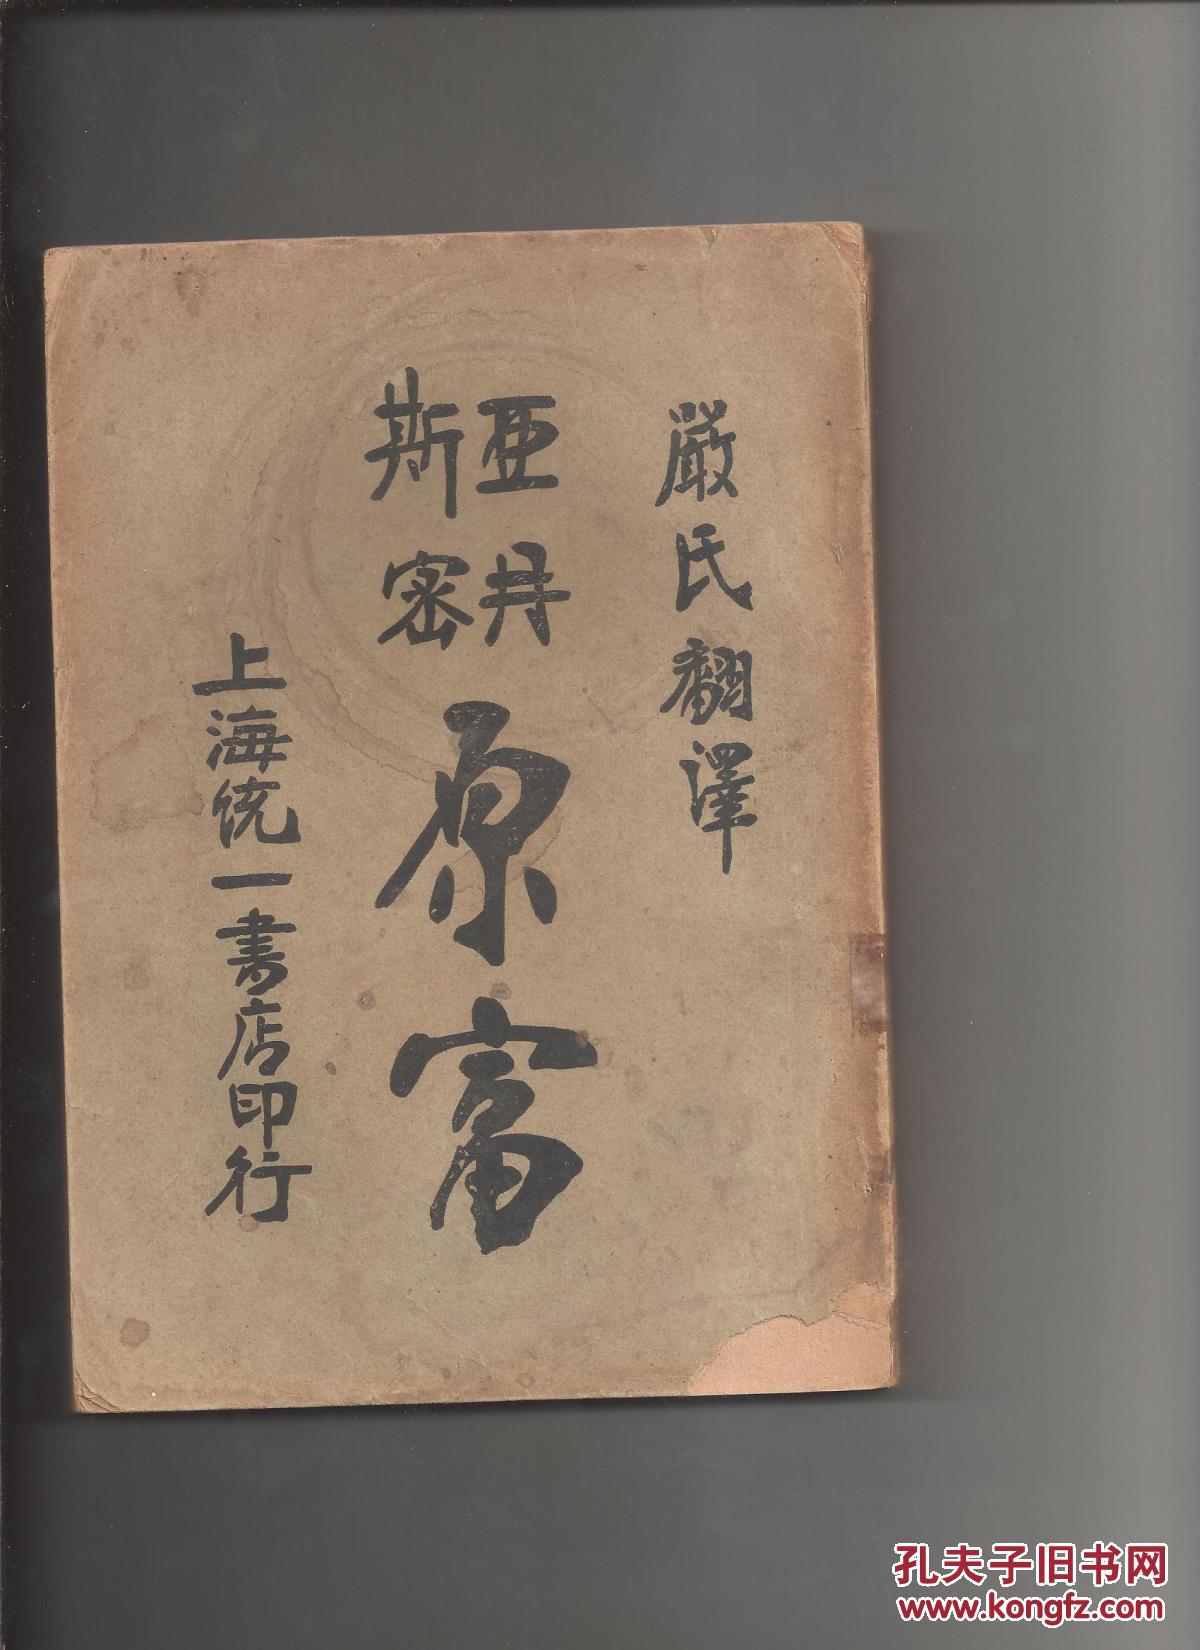 嚴氏翻澤
亞丹
斯密
原富
上海统一書店印行
孔夫子旧书网
www.kongfz.com